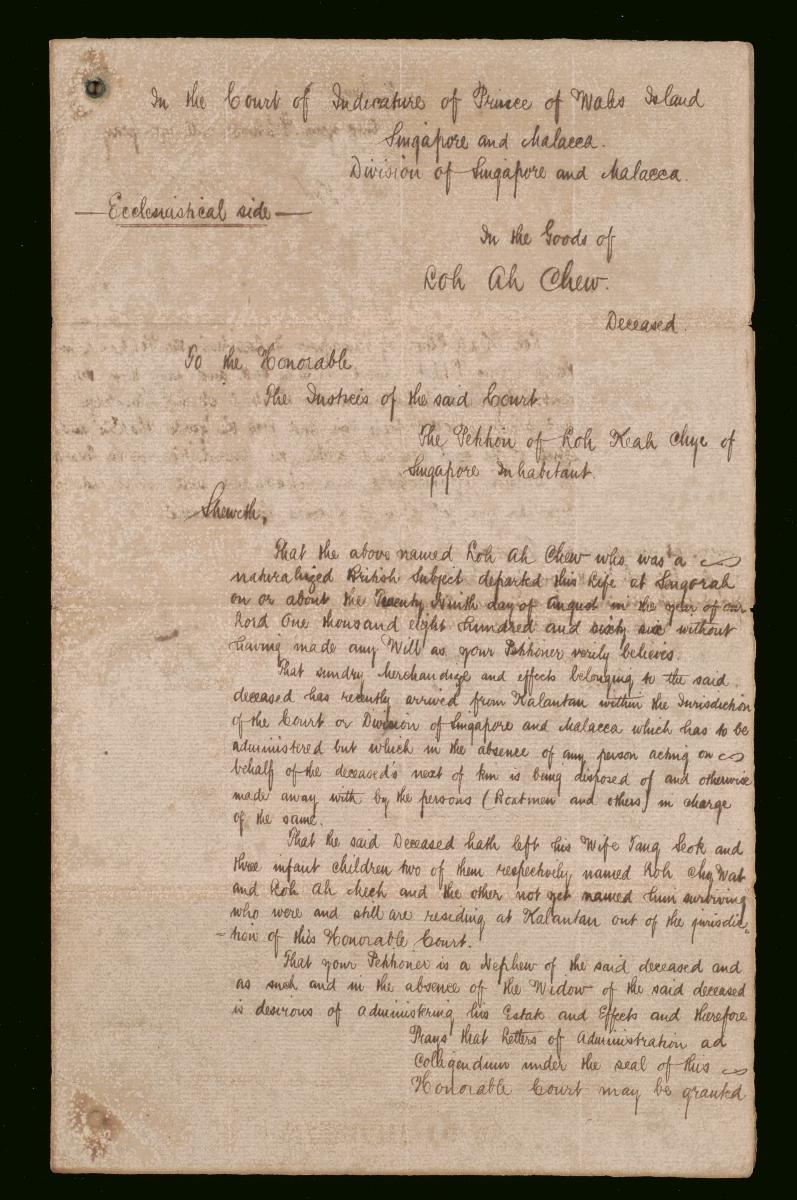 In the Court of Judicature of Prince of Wales Island
Singapore and Malacca.
Division of Singapore and Malacca.
Ecclesiastical side
In the Goods of
Loh Ah Chew.
Deceased.
To the Honorable
The Justices of the said Court.
The Petition of Loh Keah Chye of
Singapore Inhabitant.
Sheweth,
That the above named Loh Ah Chew who was a
naturalized British Subject departed this life at Singorah
on or about the Twenty Ninth day of August in the year of our
Lord One thousand eight hundred and sixty six without
having made any Will as your Petitioner verily believes.
That sundry Merchandize and effects belonging to the said
deceased has recently arrived from Kalantan within the Jurisdiction
of the Court or Division of Singapore and Malacca which has to be
administered but which in the absence of any person acting on
behalf of the deceased's next of kin is being disposed of and otherwise
made away with by the persons (Boatmen and others) in charge
of the same.
That the said Deceased hath left his Wife Tang Seok and
three infant children two of them respectively named Loh Chy Wat
and Loh Ah Cheh and the other not yet named him surviving
who were and still are residing at Kalantan out of the jurisdic-
-tion of this Honorable Court.
That your Petitioner is a Nephew of the said deceased and
as such and in the absence of the Widow of the said deceased
is desirous of administering his Estate and Effects and therefore
Prays that Letters of Administration ad
Colligendum under the seal of this
Honorable Court may be granted